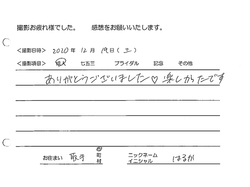 撮影お疲れ様でした。 感想をお願いいたします。
●撮影日時》 2020年 12月 19日（土）
●撮影項目》 成人 七五三 ブライダル 記念 その他
ありがとうございました♡楽しかったです
お住まい 取手 市 町 村 ニックネーム イニシャル はるか